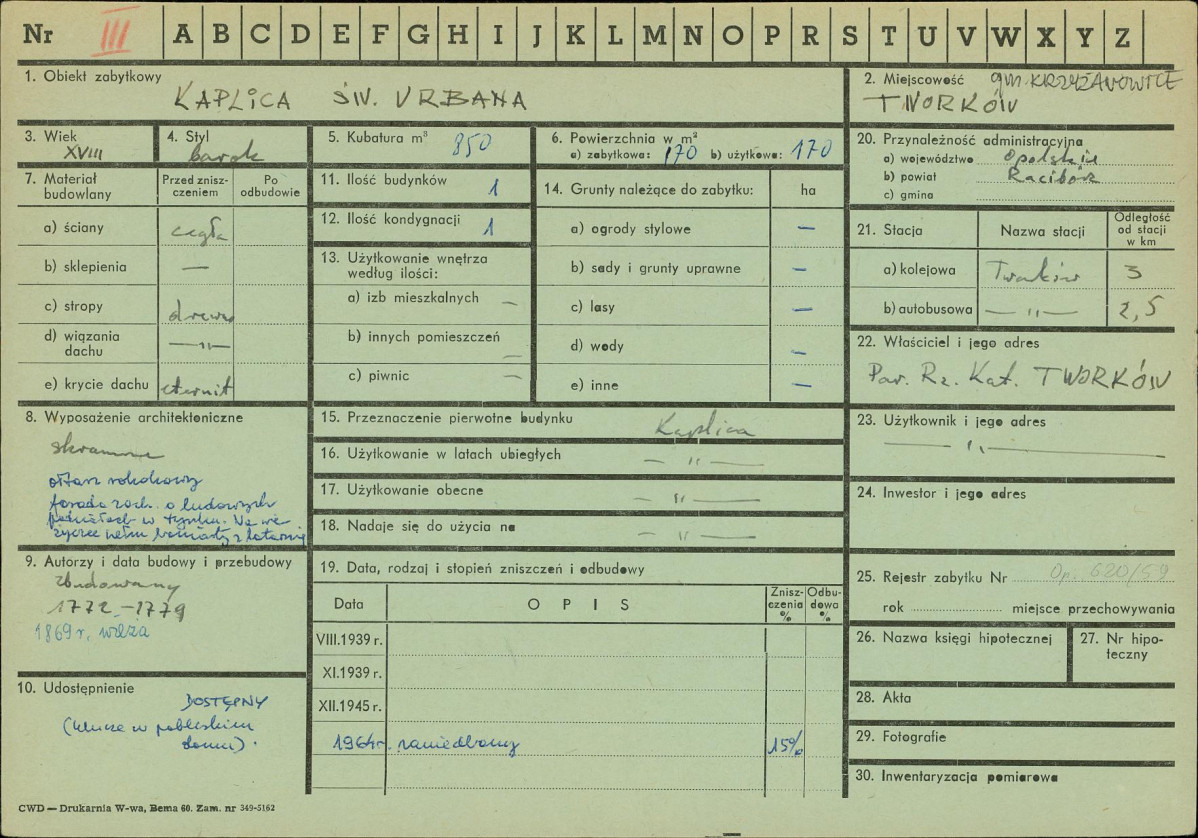 Nr III A B C D E F G H I J K L M N O P R S T U V W X Y Z
1. Obiekt zabytkowy
KAPLICA ŚW. URBANA
2. Miejscowość gm. KRZYŻANOWICE
TWORKÓW
3. Wiek
XVIII
4. Styl
barok
5. Kubatura m³ 850
6. Powierzchnia w m²
a) zabytkowa: 170 b) użytkowa: 170
20. Przynależność administracyjna
a) województwo opolskie
b) powiat Racibórz
c) gmina
7. Materiał budowlany
Przed zniszczeniem
Po odbudowie
a) ściany cegła
b) sklepienia —
c) stropy drewno
d) wiązania dachu —"—
e) krycie dachu eternit
11. Ilość budynków 1
12. Ilość kondygnacji 1
13. Użytkowanie wnętrza
według ilości:
a) izb mieszkalnych —
b) innych pomieszczeń —
c) piwnic —
14. Grunty należące do zabytku: ha
a) ogrody stylowe —
b) sady i grunty uprawne —
c) lasy —
d) wody —
e) inne —
21. Stacja Nazwa stacji Odległość od stacji w km
a) kolejowa Tworków 3
b) autobusowa —"— 2,5
22. Właściciel i jego adres
Par. Rz. Kat. TWORKÓW
8. Wyposażenie architektoniczne
skromne
ołtarz rokokowy
fasada zach. o ludowych
podziałach w tynku. Na wie
życzce hełm baniasty z latarnią
15. Przeznaczenie pierwotne budynku Kaplica
16. Użytkowanie w latach ubiegłych —"—
17. Użytkowanie obecne —"—
18. Nadaje się do użycia na —"—
23. Użytkownik i jego adres
—"—
24. Inwestor i jego adres
9. Autorzy i data budowy i przebudowy
zbudowany
1772–1779
1869 r. wieża
19. Data, rodzaj i stopień zniszczeń i odbudowy
Data OPIS Zniszczenia % Odbudowa %
VIII.1939 r.
XI.1939 r.
XII.1945 r.
1964 r. zaniedbany 15%
25. Rejestr zabytku Nr Op. 620/59
rok miejsce przechowywania
26. Nazwa księgi hipotecznej
27. Nr hipoteczny
10. Udostępnienie
DOSTĘPNY
(klucze w pobliskim
domu).
28. Akta
29. Fotografie
30. Inwentaryzacja pomiarowa
CWD — Drukarnia W-wa, Bema 60. Zam. nr 349-5162